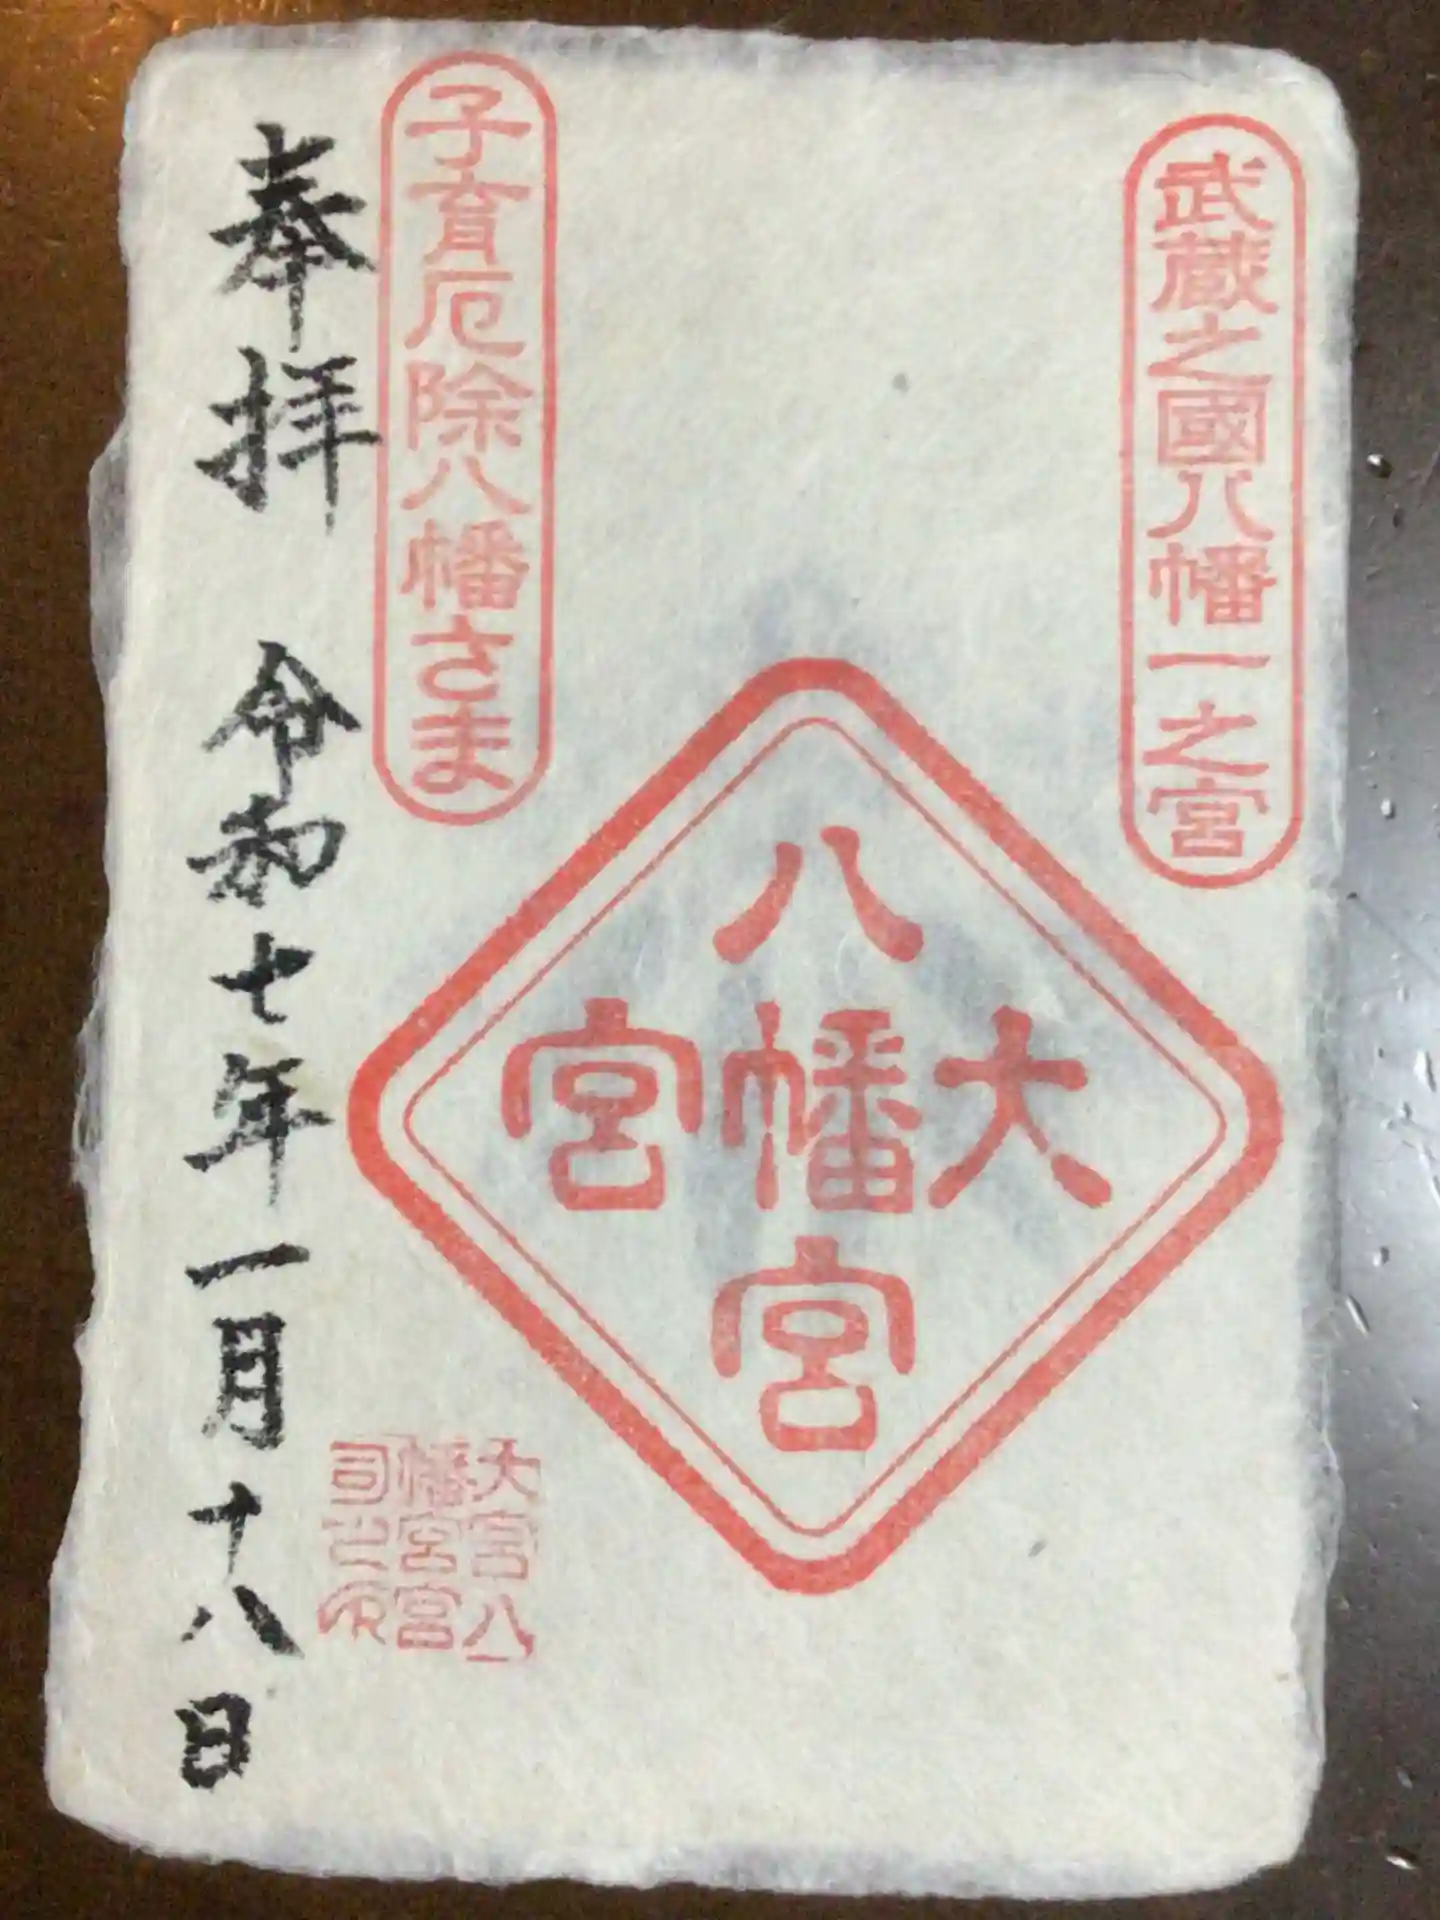 武蔵之國八幡一之宮
八幡宮
大宮
子育厄除八幡さま
大宮八
幡宮宮
司之印
奉拝 令和七年一月十八日